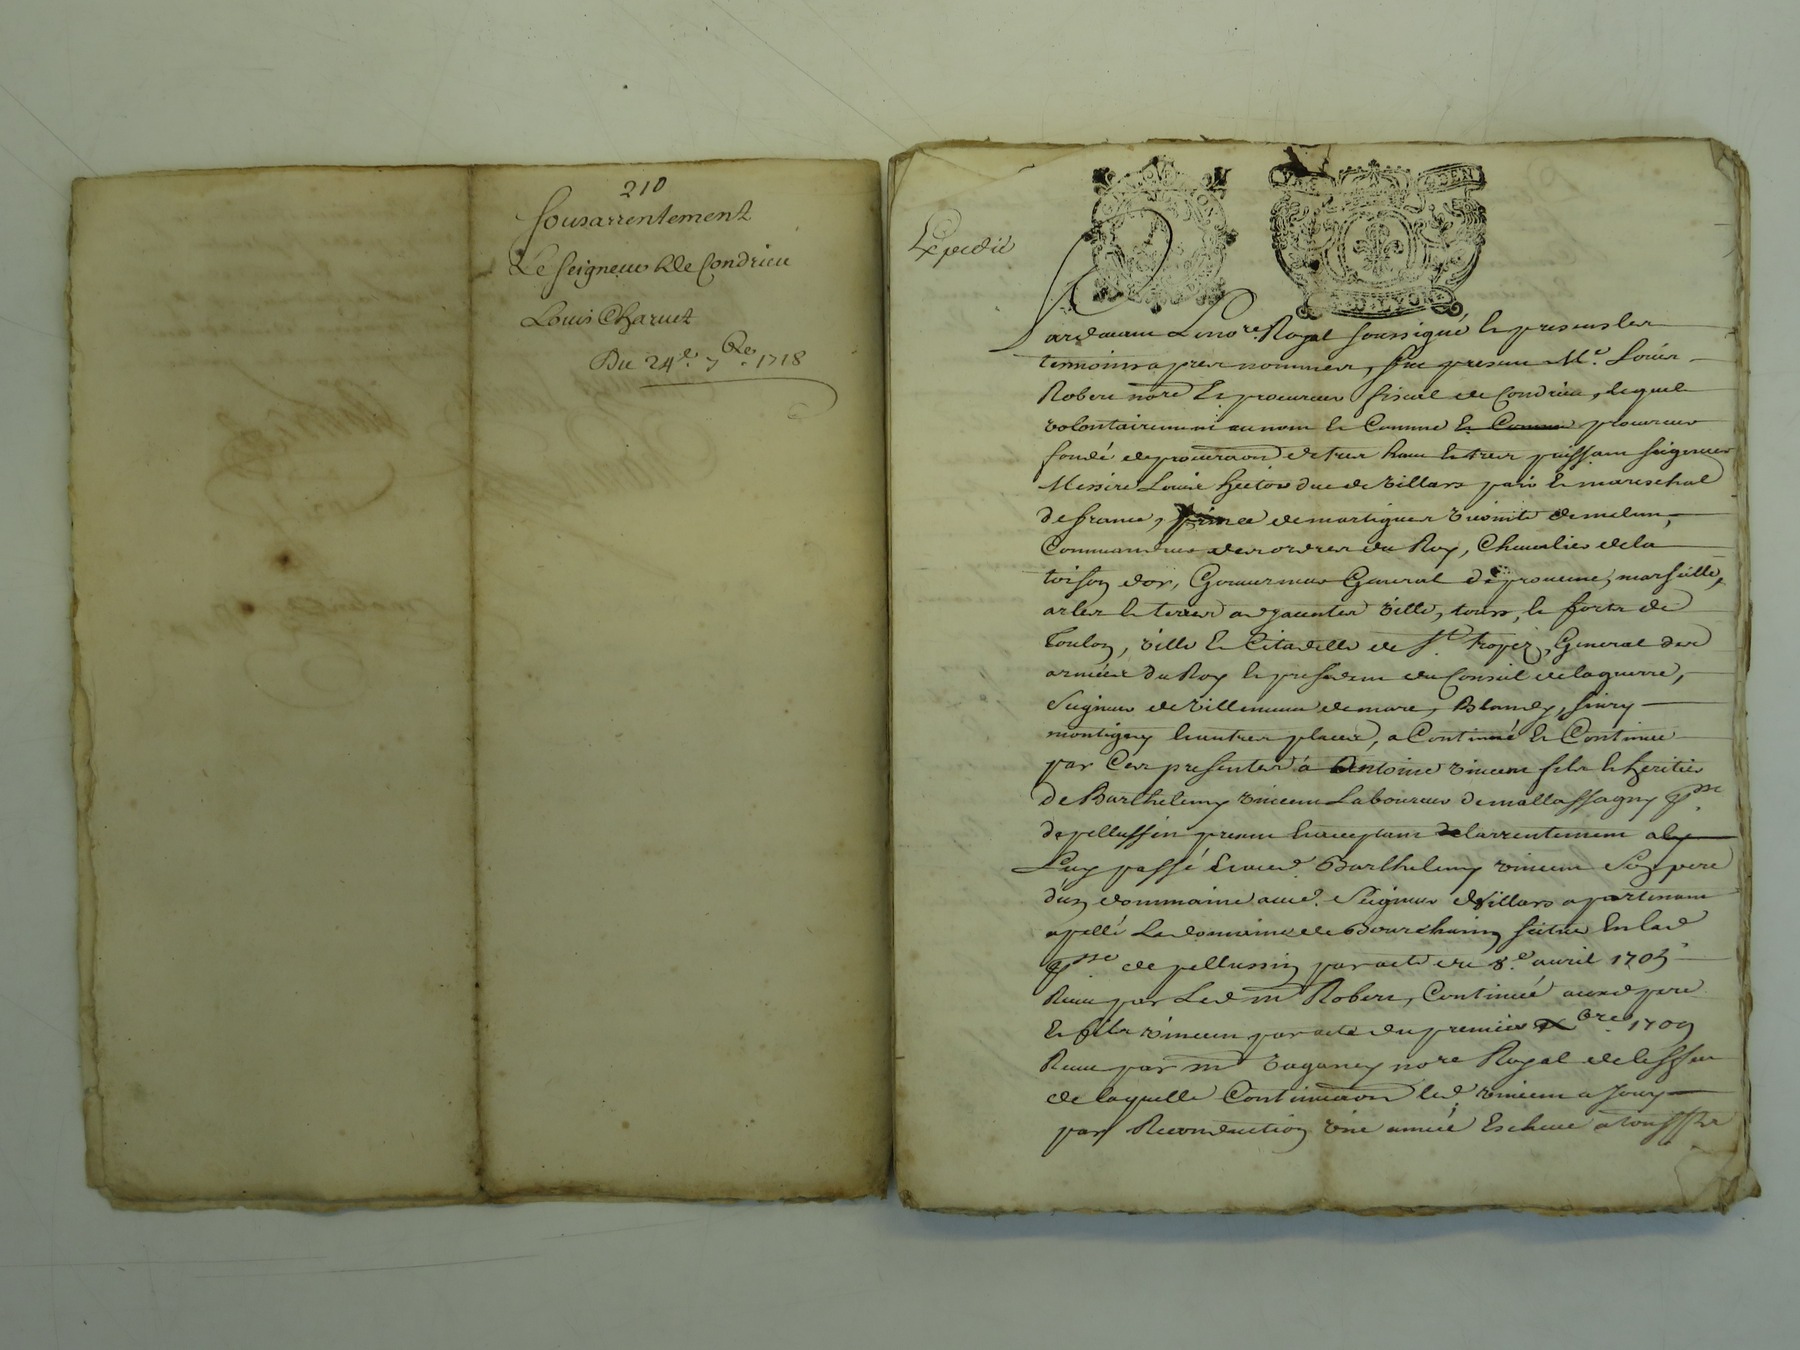 210
sousarrentement
Le seigneur de Condrieu
Louis Charuet
Du 24e 7bre 1718
Expedié
Pardeuant Le nore Royal soussigné et presens les
temoins apres nommes, fut present Me Louis
Robert nore et procureur fiscal de Condrieu, lequel
volontairement au nom et Comme et Comme procureur
fondé de procuraon de tres haut et tres puissant seigneur
Messire Louis hector duc de villars pair et mareschal
de france, prince de martigues vicomte de melun,
Commandeur des ordres du Roy, Cheualier de la
toison dor, Gouuerneur General de prouence, marseille,
arles et terres adjacentes ville, tours, et forts de
Toulon, ville et Citadelle de St tropez, General des
armées du Roy et president du Conseil de la guerre,
Seigneur de villeneuue de mare, Blandy, siury
montigny et autres places, a Continué et Continue
par Ces presentes á Antoine vincent fils et heritier
de Barthelemy vincent Laboureur de mallassagny psse
de pellussin present et acceptant de larrentement a
Luy passé et aud. Barthelemy vincent Son pere
dun dommaine aud. Seigneur de Villars apartenant
apellé Le domaine de Bourchanin scitué En lad
psse de pellussin par acte du 8e auril 1705
Receu par Led me Robert, Continué ausd pere
et fils vincent par acte du premier bre 1709
Receu par me vaganey nore Royal de leffet
de laquelle Continuaon led. vincent a Jouy
par Reconduction vne année Escheue a toussts